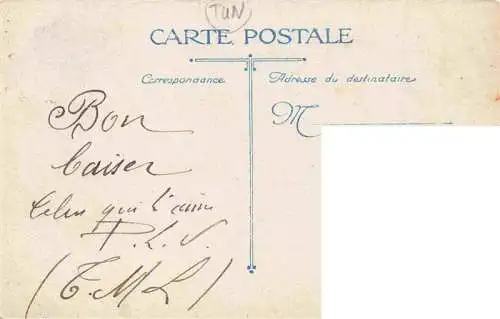 TUN
CARTE POSTALE
Correspondance
Adresse du destinataire
M
Bon
baiser
Celui qui t'aime
P. L. V.
(T. M L)